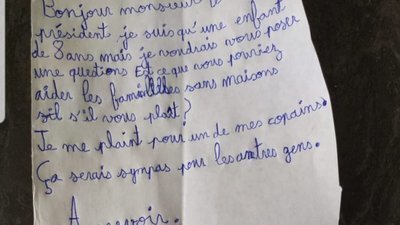 Bonjour monsieur le
président je suis qu'une enfant
de 8 ans mais je voudrais vous poser
une questions Est ce que vous pourriez
aider les familles sans maisons
s'il vous plait?
Je me plaint pour un de mes copains.
Ça serais sympas pour les autres gens.
Au revoir.